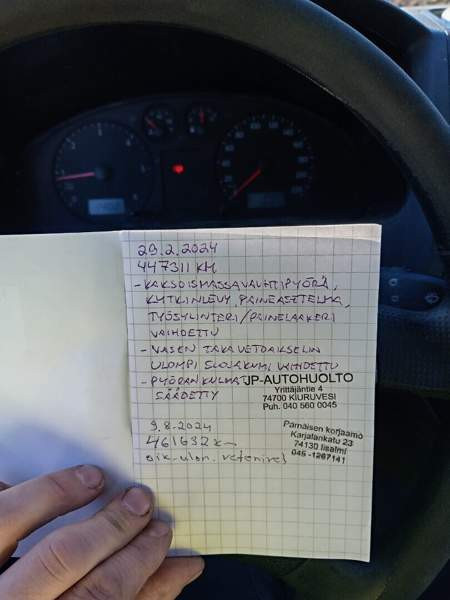 29.2.2024
447311 KM
- KAKSOISMASSAVAUHTIPYÖRÄ,
KYTKINLEVY, PAINEASETELMA,
TYÖSYLINTERI/PAINELAAKERI
VAIHDETTU
- VASEN TAKAVETOAKSELIN
ULOMPI SUOJAKUMI VAIHDETTU
- PYÖRÄNKULMAT
SÄÄDETTY
JP-AUTOHUOLTO
Yrittäjäntie 4
74700 KIURUVESI
Puh. 040 560 0045
9.8.2024
461632 km
oik. ulon. vetonivel
Parnaisen korjaamo
Karjalankatu 23
74130 Iisalmi
045 -1267141